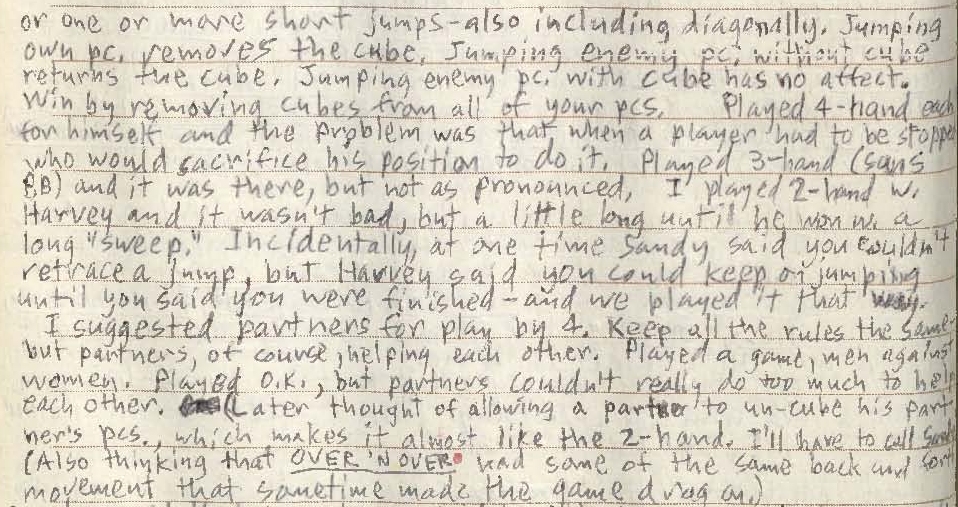 or one or more short jumps-also including diagonally. Jumping
own pc. removes the cube. Jumping enemy pc. without cube
returns the cube. Jumping enemy pc. with cube has no affect.
Win by removing cubes from all of your pcs. Played 4-hand each
for himself and the problem was that when a player had to be stoppe
who would sacrifice his position to do it. Played 3-hand (sans
EB) and it was there, but not as pronounced. I played 2-hand w.
Harvey and it wasn't bad, but a little long until he won w. a
long "sweep." Incidentally, at one time Sandy said you couldn't
retrace a jump, but Harvey said you could keep on jumping
until you said you were finished-and we played it that way.
I suggested partners for play by 4. Keep all the rules the same
but partners, of course, helping each other. Played a game, men against
women. Played O.K., but partners couldn't really do too much to help
each other. (Later thought of allowing a partner to un-cube his part
ner's pcs., which makes it almost like the 2-hand. I'll have to call
(Also thinking that OVER 'N OVER had some of the same back and
movement that sometime made the game drag on.)